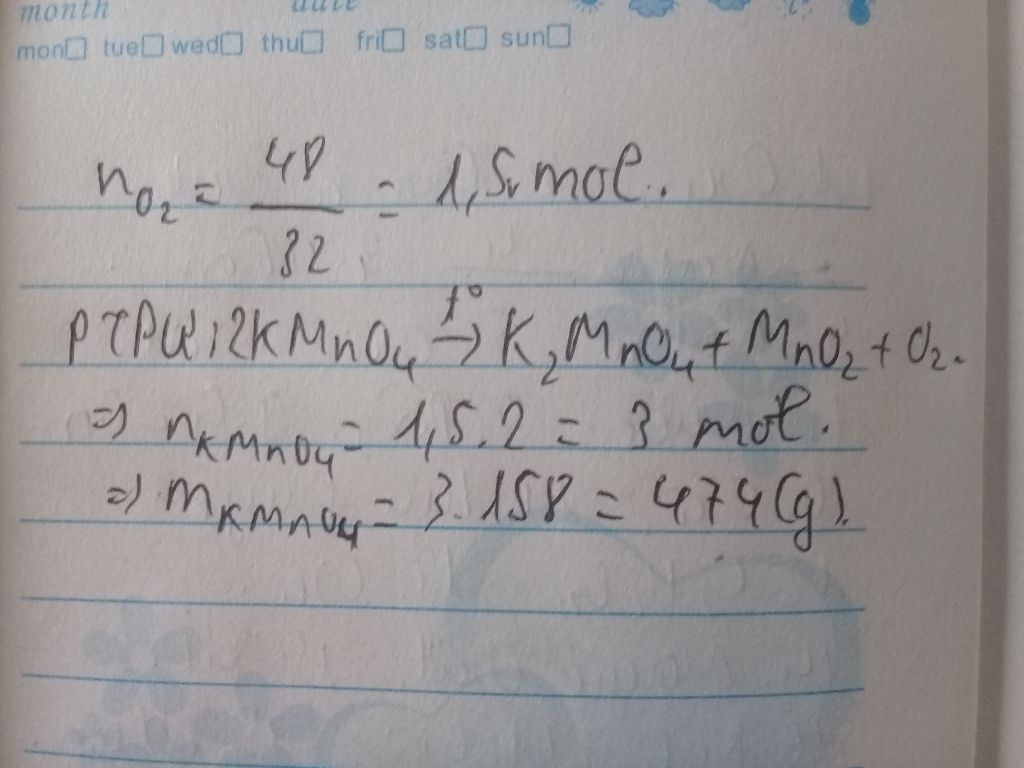 month date
mon□ tue□ wed□ thu□ fri□ sat□ sun□
n_{O_2} = \frac{48}{32} = 1,5 mol.
PTPƯ: 2KMnO_4 \xrightarrow{t^o} K_2MnO_4 + MnO_2 + O_2.
⇒ n_{KMnO_4} = 1,5.2 = 3 mol.
⇒ m_{KMnO_4} = 3.158 = 474(g).